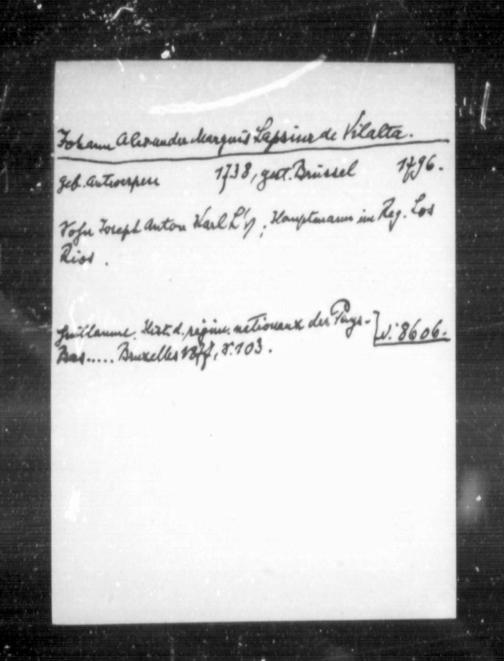 Johann Alexander Marquis Lapsina de Vilalta.
geb. Antwerpen 1738, gest. Brüssel 1796.
Sohn Joseph Anton Karl L's, Hauptmann im Reg. Los
Rios.
Guillaume. Hist. d. régim. nationaux des Pays-
Bas..... Bruxelles S. 103. N: 8606.